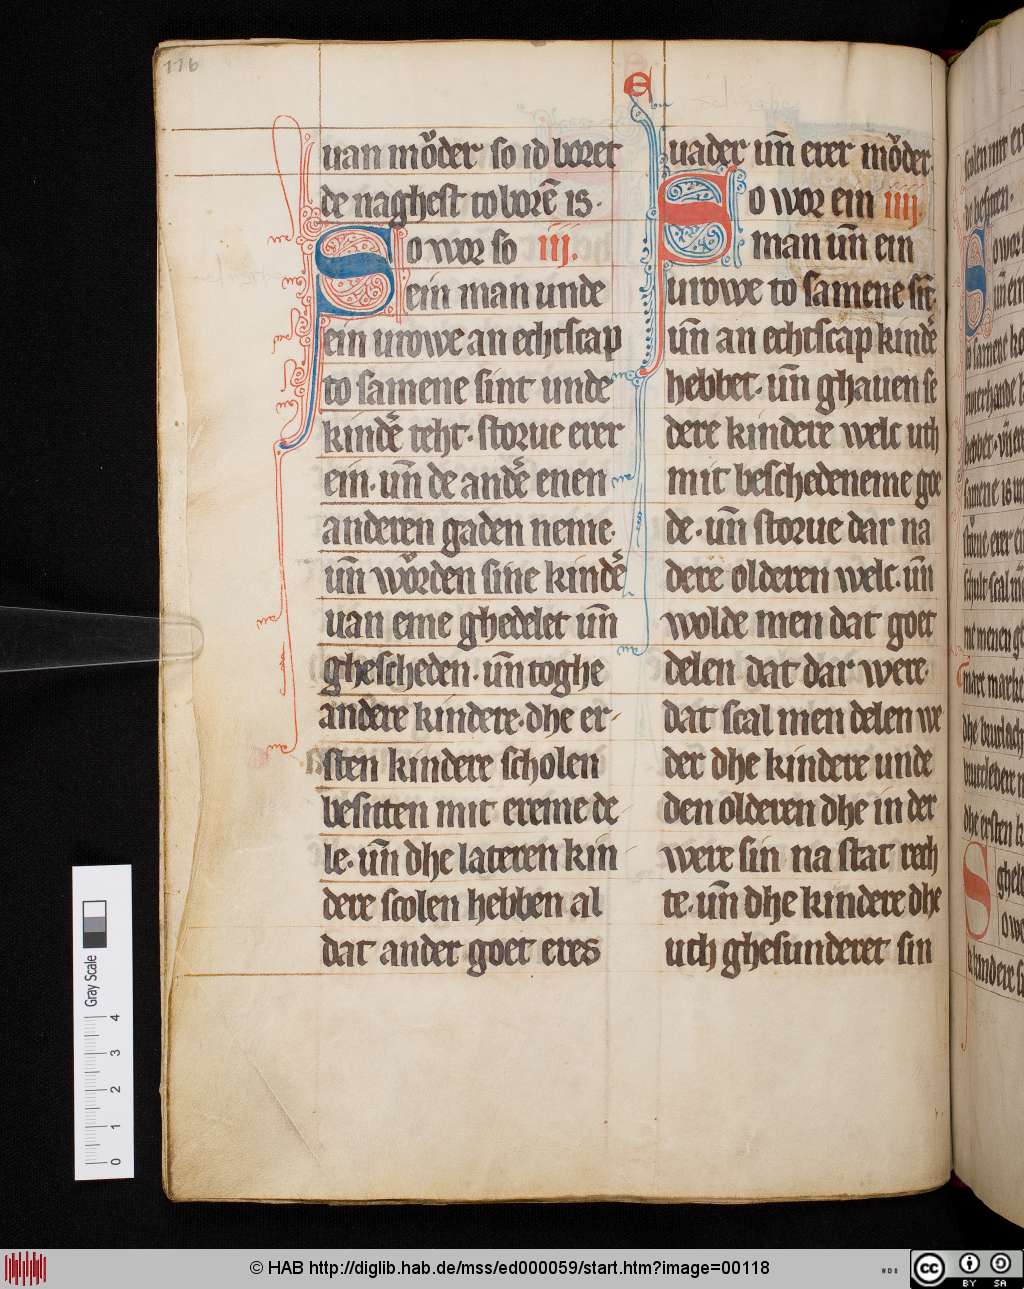 116
e
uan moͮder so id boret
de naghest to borē is·
So wor so iij.
ein man unde
ein urowe an echtscap
to samene sint unde
kindͤ teht· storue erer
ein· un̄ de andͤ enen
anderen gaden neme·
un̄ woͮrden sine kindͤ
uan eme ghedelet un̄
ghescheden· un̄ toghe
andere kindere· dhe er
sten kindere scholen
besitten mit ereme de
le· un̄ dhe lateren kin
dere scolen hebben al
dat ander goet eres
uader un̄ erer moͮder
So wor ein iiij
man un̄ ein
urowe to samene sīt·
un̄ an echtscap kindͤ
hebbet· un̄ ghauen se
dere kindere welc uth
mit beschedeneme goe
de· un̄ storue dar na
dere olderen welc· un̄
wolde men dat goet
delen dat dar were·
dat scal men delen we
der dhe kindere unde
den olderen dhe in der
were sin na stat rech
te· un̄ dhe kindere dhe
uth ghesunderet sin
Gray Scale
4
3
2
1
0
© HAB http://diglib.hab.de/mss/ed000059/start.htm?image=00118
cc BY SA